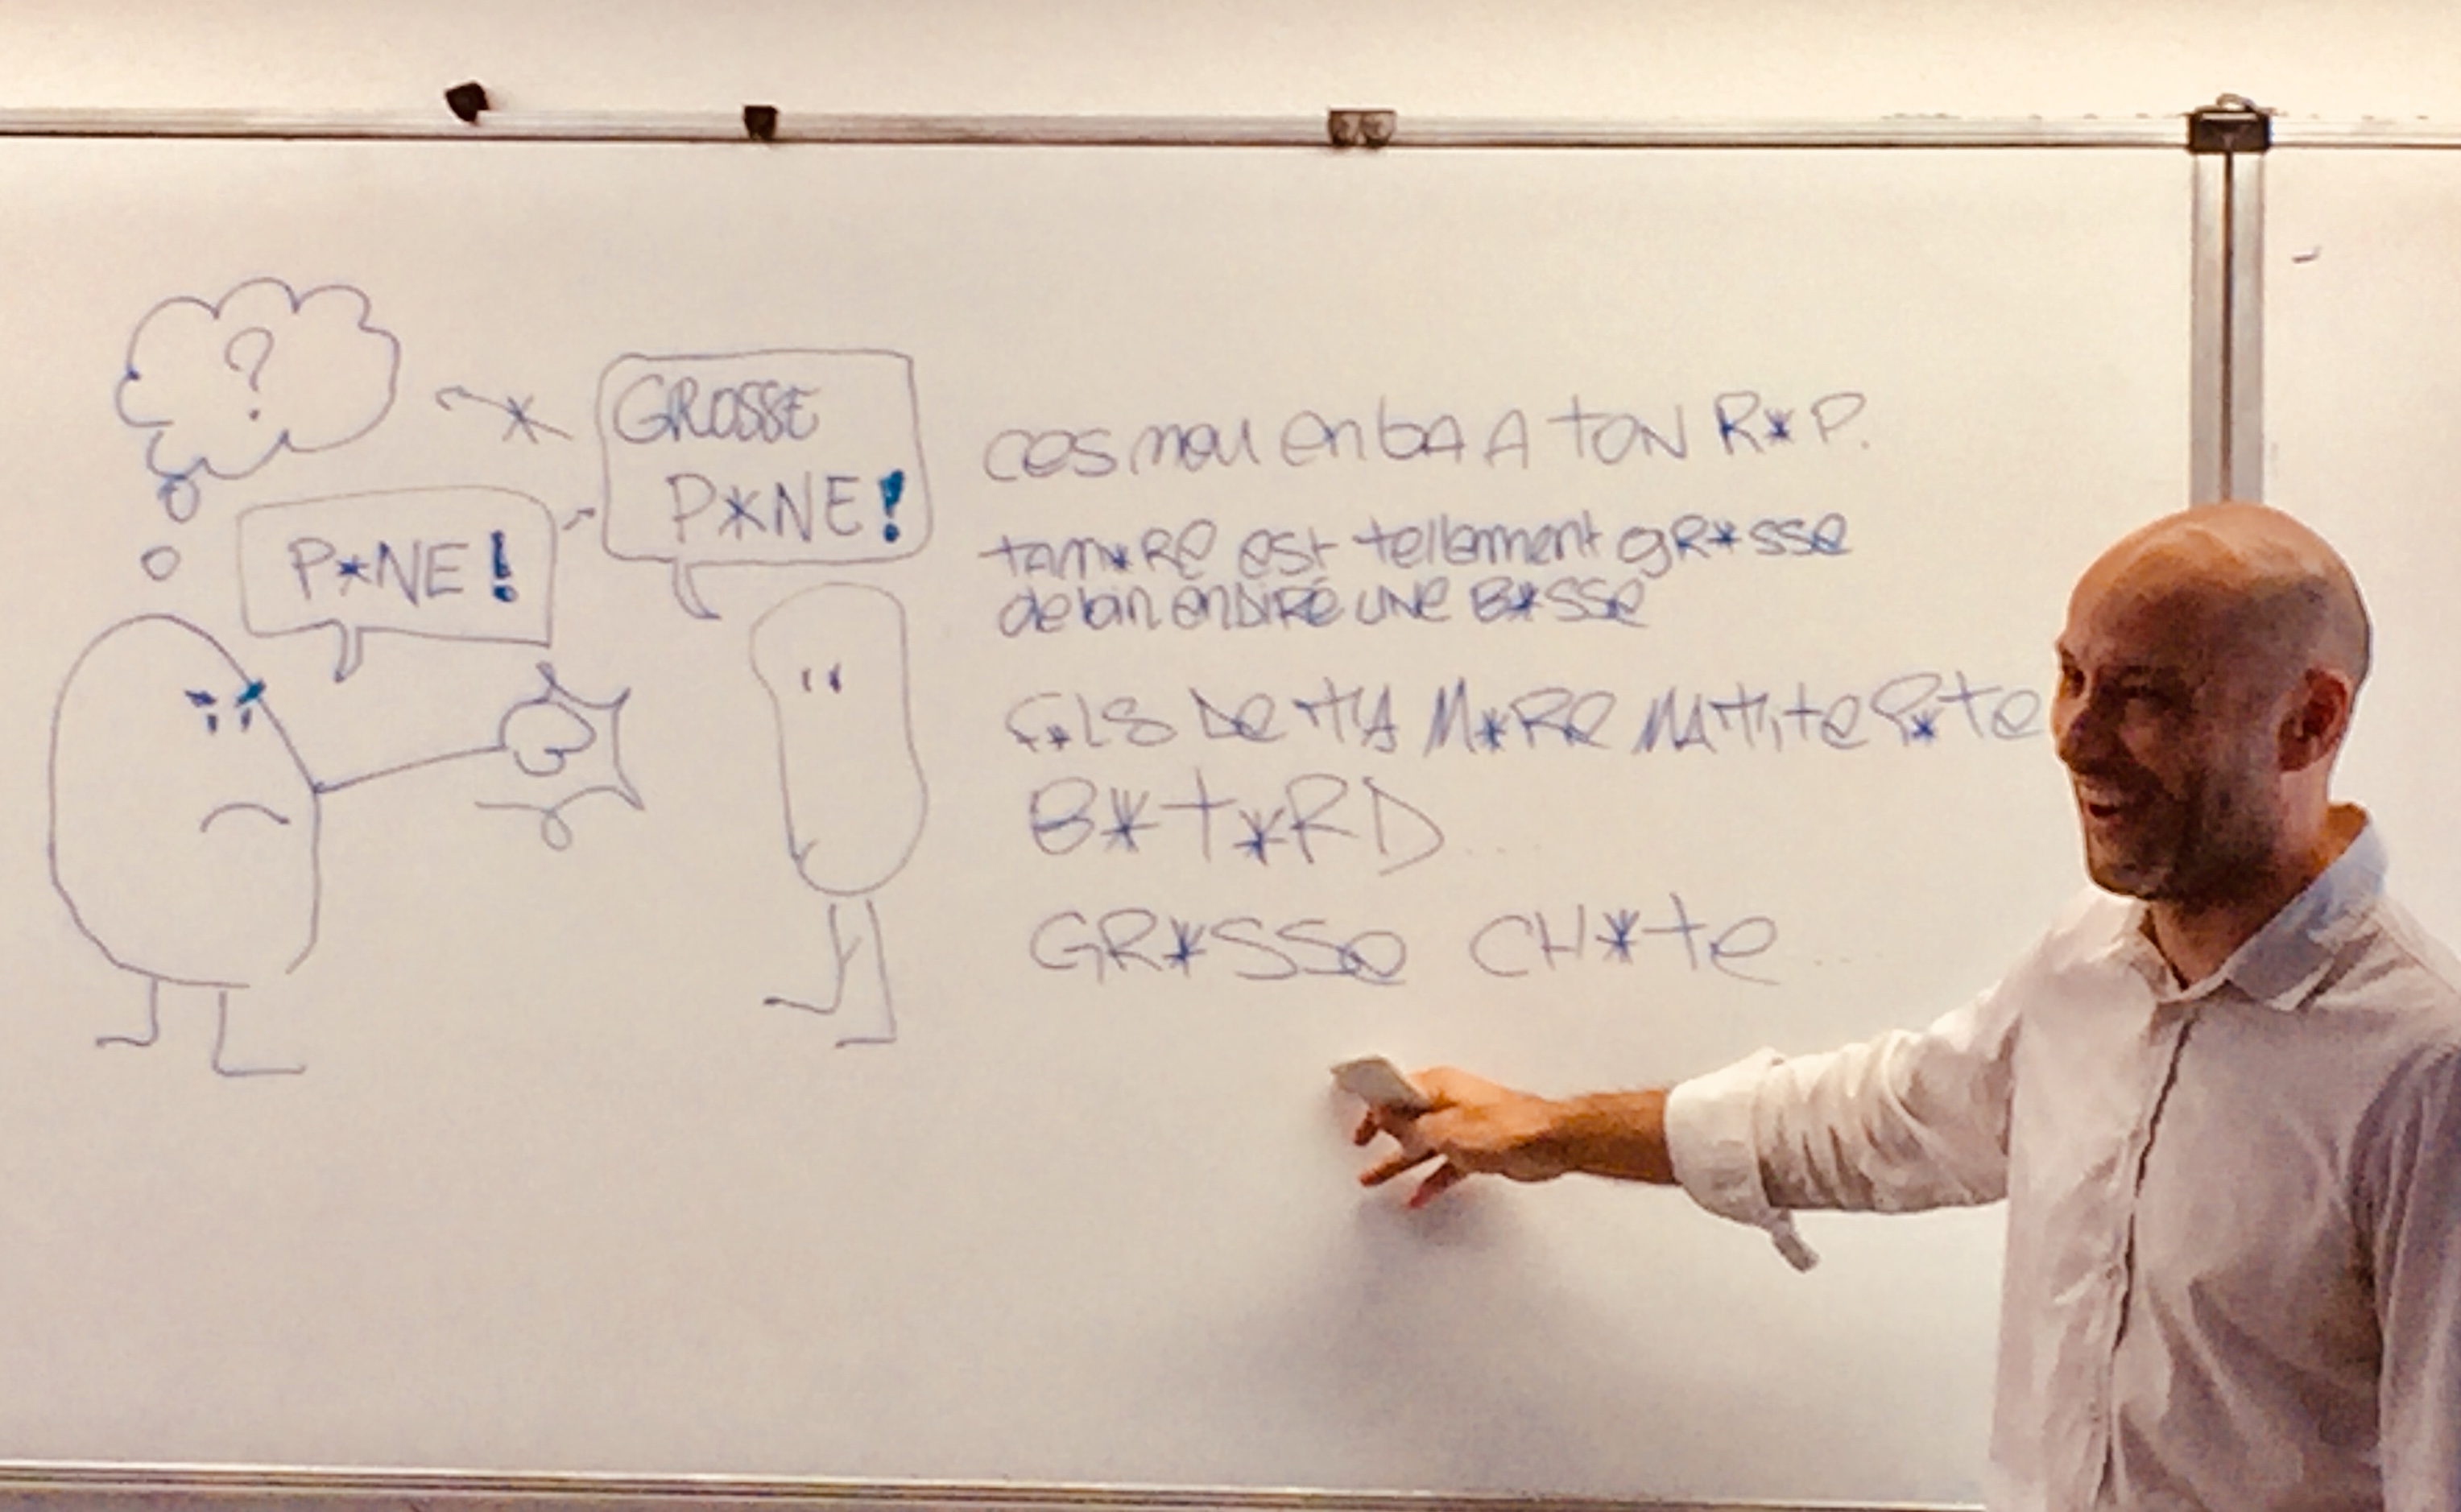 ?
GROSSE
P*NE!
P*NE!
ces mou en bA A TON R*P.
tam*Re est tellement gR*sse
de loin en diRé UNe B*sse
F*LS De TTA M*RRe MATTite P*te
B*T*RD...
GR*SSe CH*te...